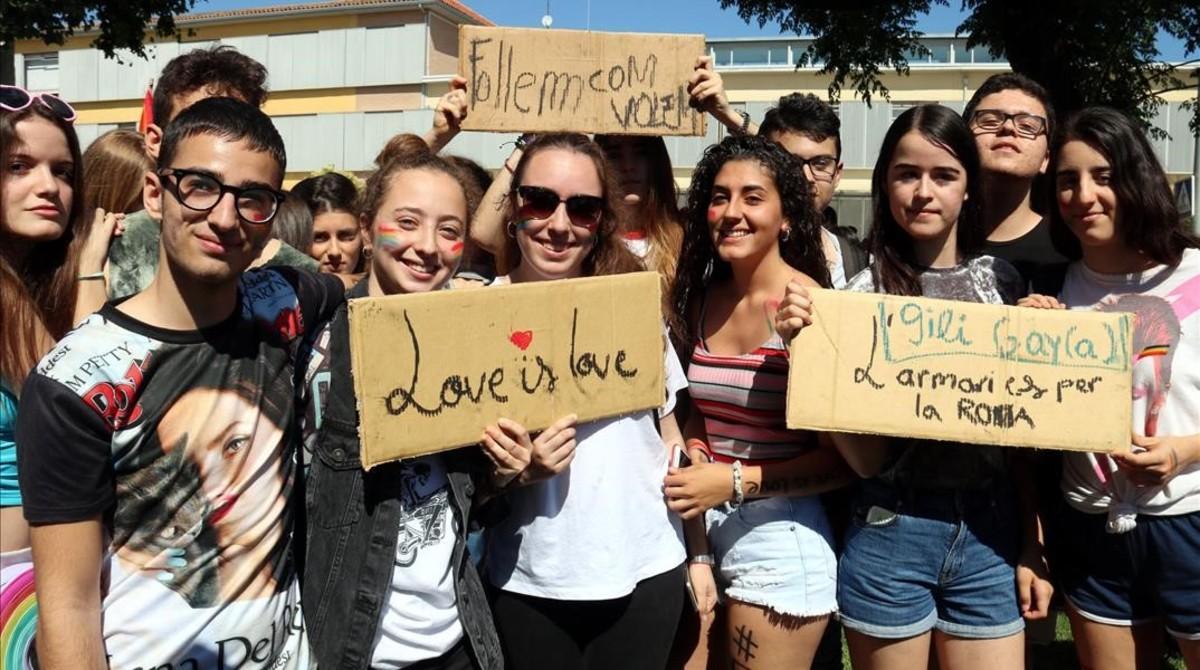 Follem com
volem
Love is love
¡¡gili (gay(a)!!
L'armari és per
la ROBA
M PETTY
Lana Del R
e is love
#